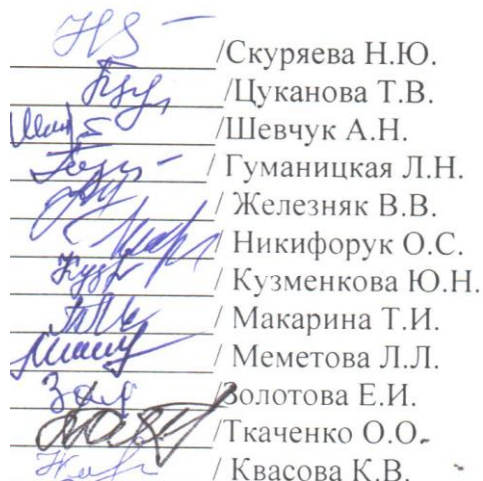 /Скуряева Н.Ю.
/Цуканова Т.В.
/Шевчук А.Н.
/ Гуманицкая Л.Н.
/ Железняк В.В.
/ Никифорук О.С.
/ Кузменкова Ю.Н.
/ Макарина Т.И.
/ Меметова Л.Л.
/Золотова Е.И.
/Ткаченко О.О.
/ Квасова К.В.